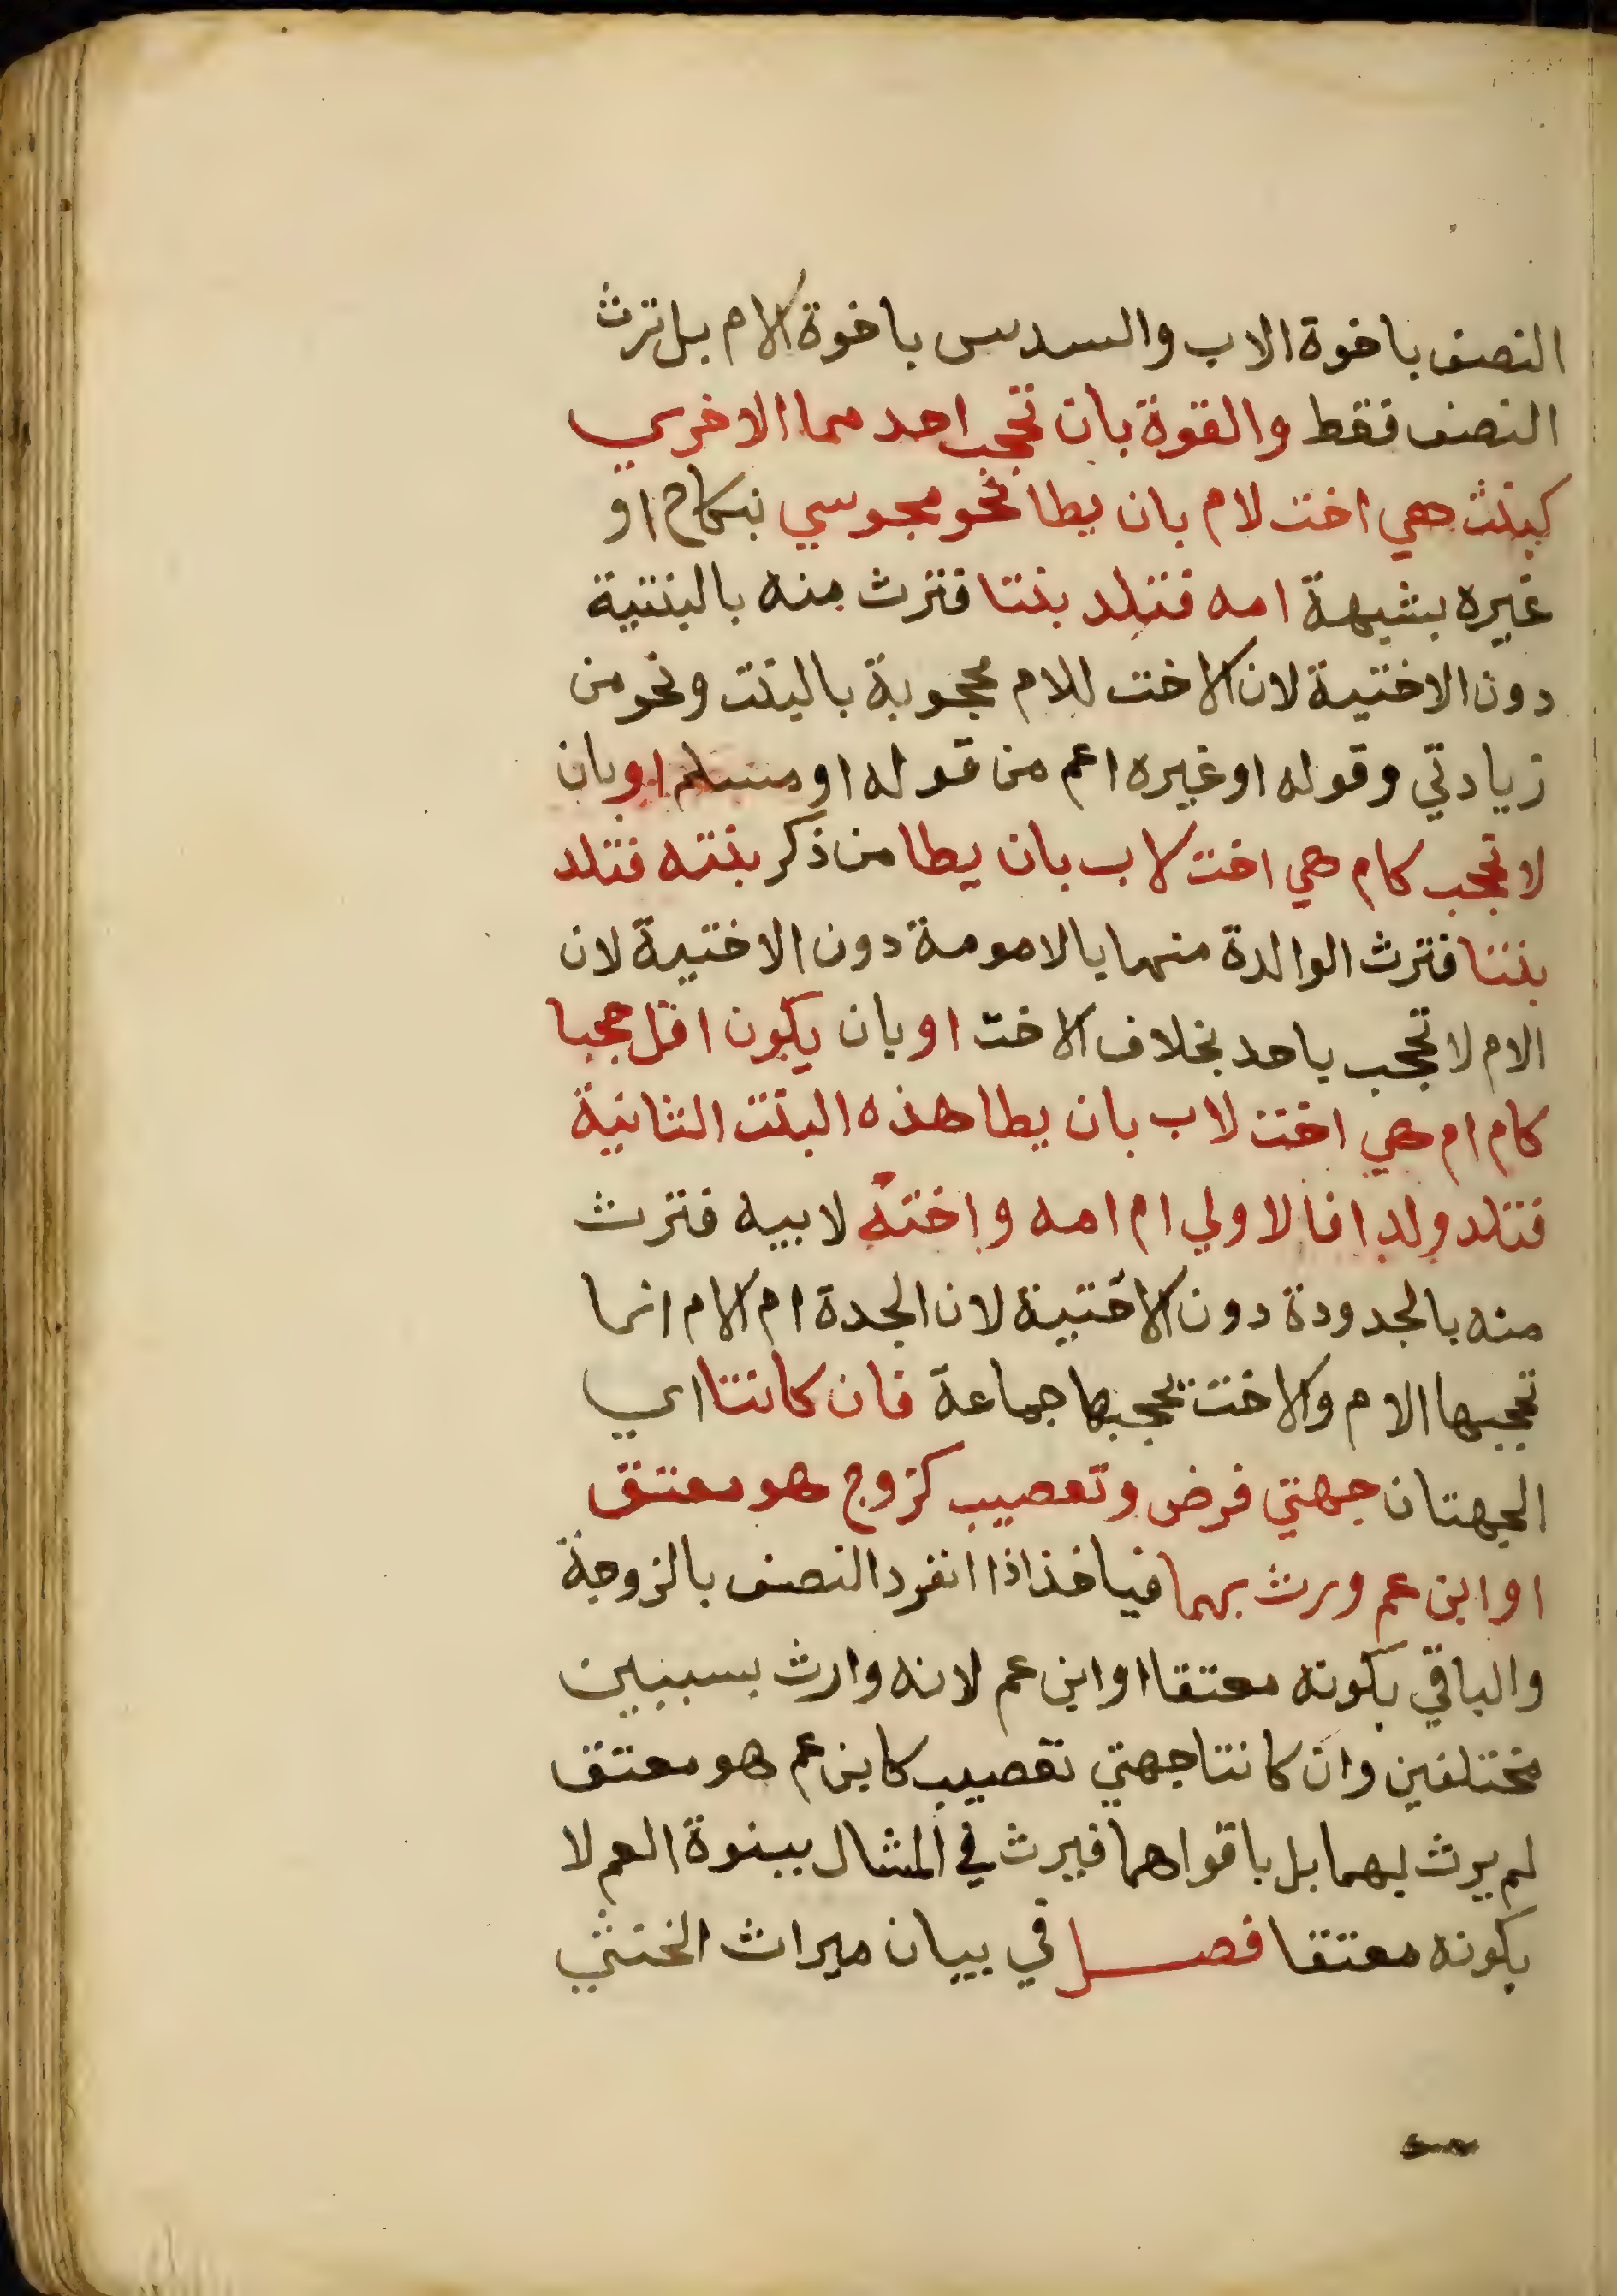 النصف باخوة الاب والسدس باخوة الام بل ترث
النصف فقط والقوة بان تحجب احد مما الاخري
كبنت هي اخت لام بان يطا نحو مجوسي بنكاح او
غيره بشبهة امه فتلد بنتا فترث منه بالبنتية
دون الاختية لان الاخت للام محجوبة بالبنت ونحو من
زيادتي وقوله او غيره اعم من قوله او مسلم او بان
لا تحجب كام هي اخت لاب بان يطا من ذكر بنته فتلد
بنتا فترث الوالدة منها بالامومة دون الاختية لان
الام لا تحجب باحد بخلاف الاخت او بان يكون اقل حجبا
كام ام هي اخت لاب بان يطا هذه البنت الثانية
فتلد ولدا فالاولي ام امه واخته لابيه فترث
منه بالجدودة دون الاختية لان الجدة ام الام انما
تحجبها الام والاخت يحجبها جماعة فان كانتا اي
الجهتان جهتي فرض وتعصيب كزوج هو معتق
او ابن عم ورث بهما فياخذ اذا انفرد النصف بالزوجة
والباقي بكونه معتقا او ابن عم لانه وارث بسببين
مختلفين وان كانتا جهتي تعصيب كابن عم هو معتق
لم يرث بهما بل باقواهما فيرث في المثال ببنوة العم لا
بكونه معتقا فصل في بيان ميراث الخنثي